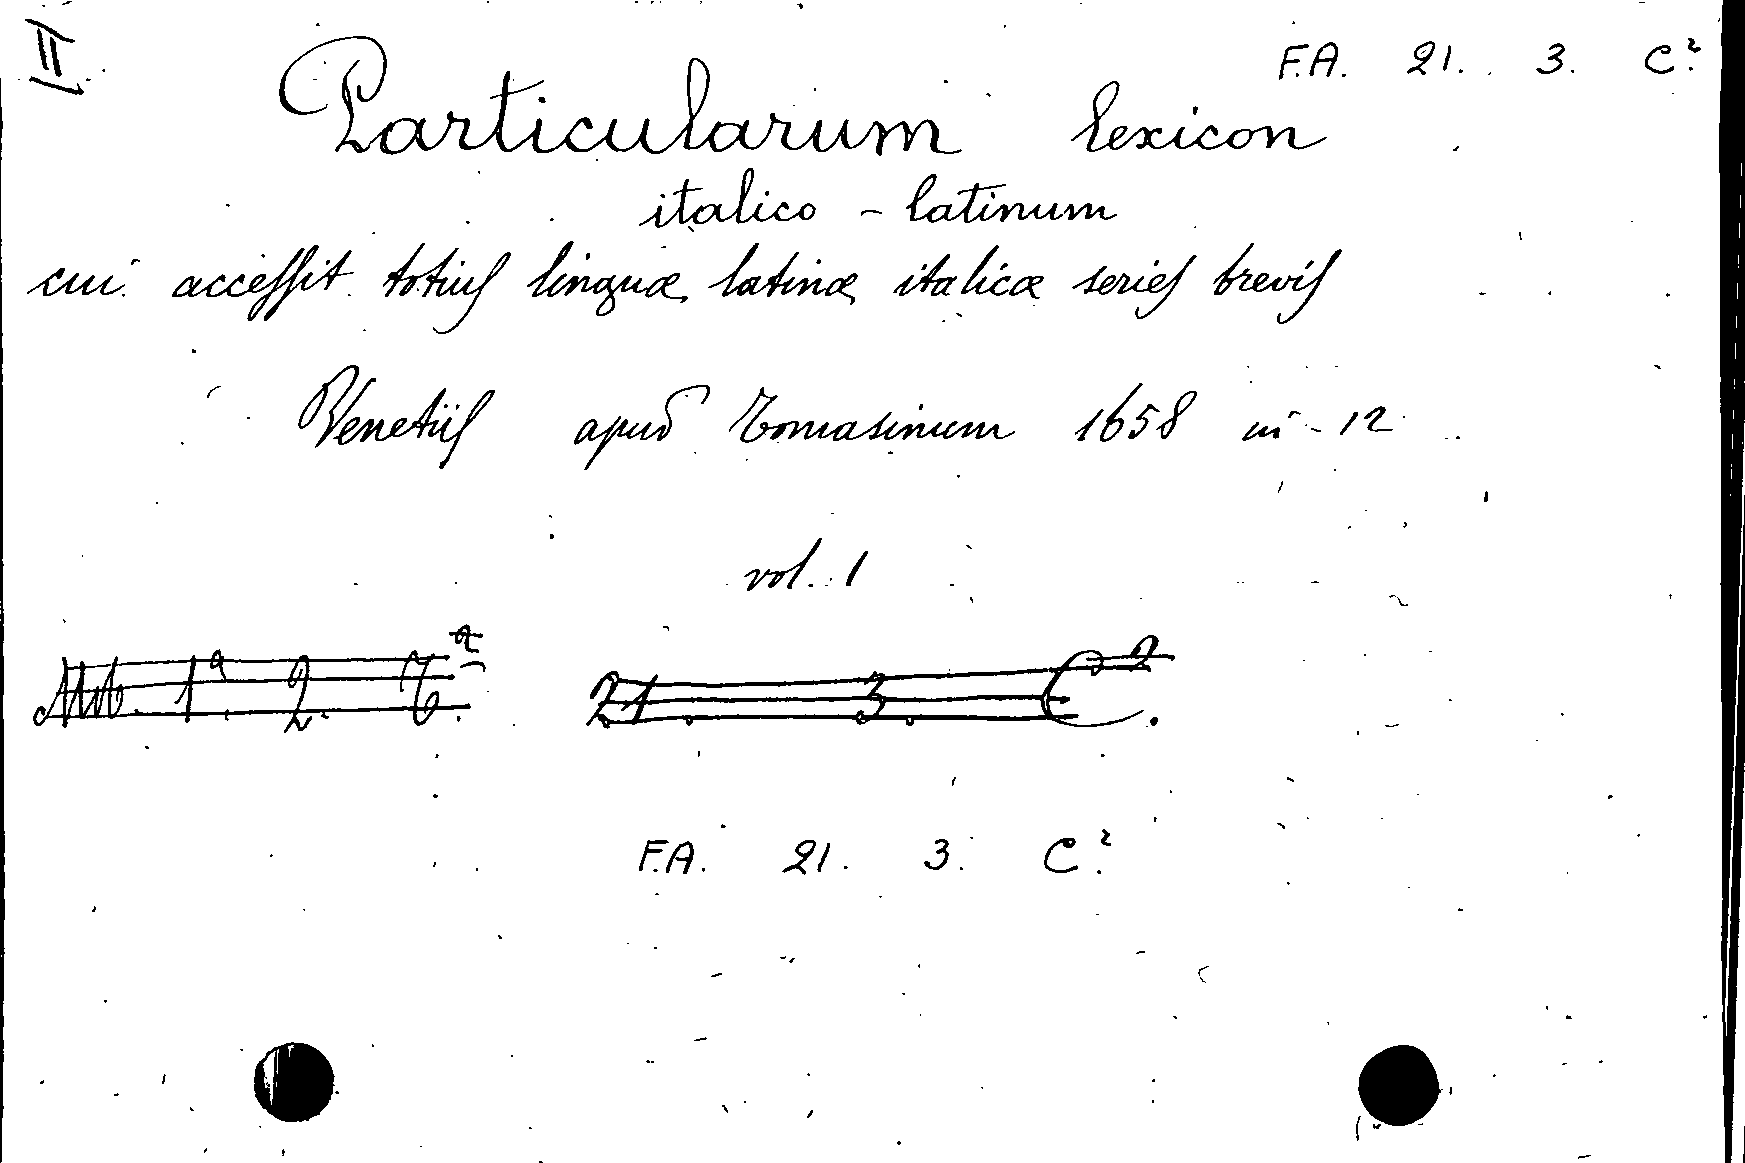 F.A. 21. 3. C².
Particularum lexicon
italico - latinum
cui accessit totius linguæ latinæ italicæ series brevis
Venetiis apud Tomasinum 1658 in - 12
vol. 1
1ª. 2. 
21. 3. C².
F.A. 21. 3. C².